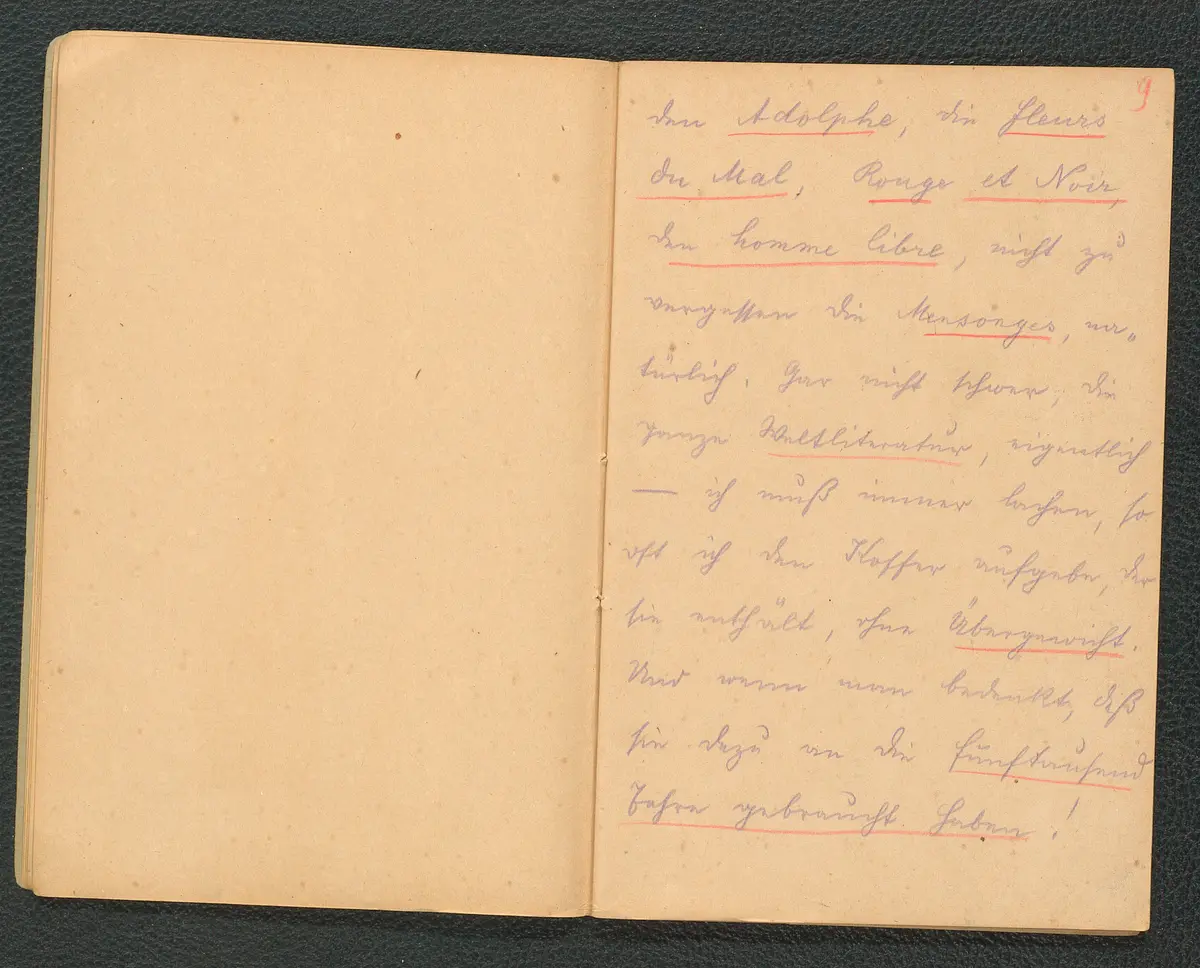 9
den Adolphe, die Fleurs
du Mal, Rouge et Noir,
den homme libre, nicht zu
vergessen die Mensonges, na„
türlich. Gar nicht schwer, die
ganze Weltliteratur, eigentlich
— ich muß immer lachen, so
oft ich den Koffer aufgebe, der
sie enthält, ohne Übergewicht.
Und wenn man bedenkt, daß
sie dazu an die fünftausend
Jahre gebraucht haben!